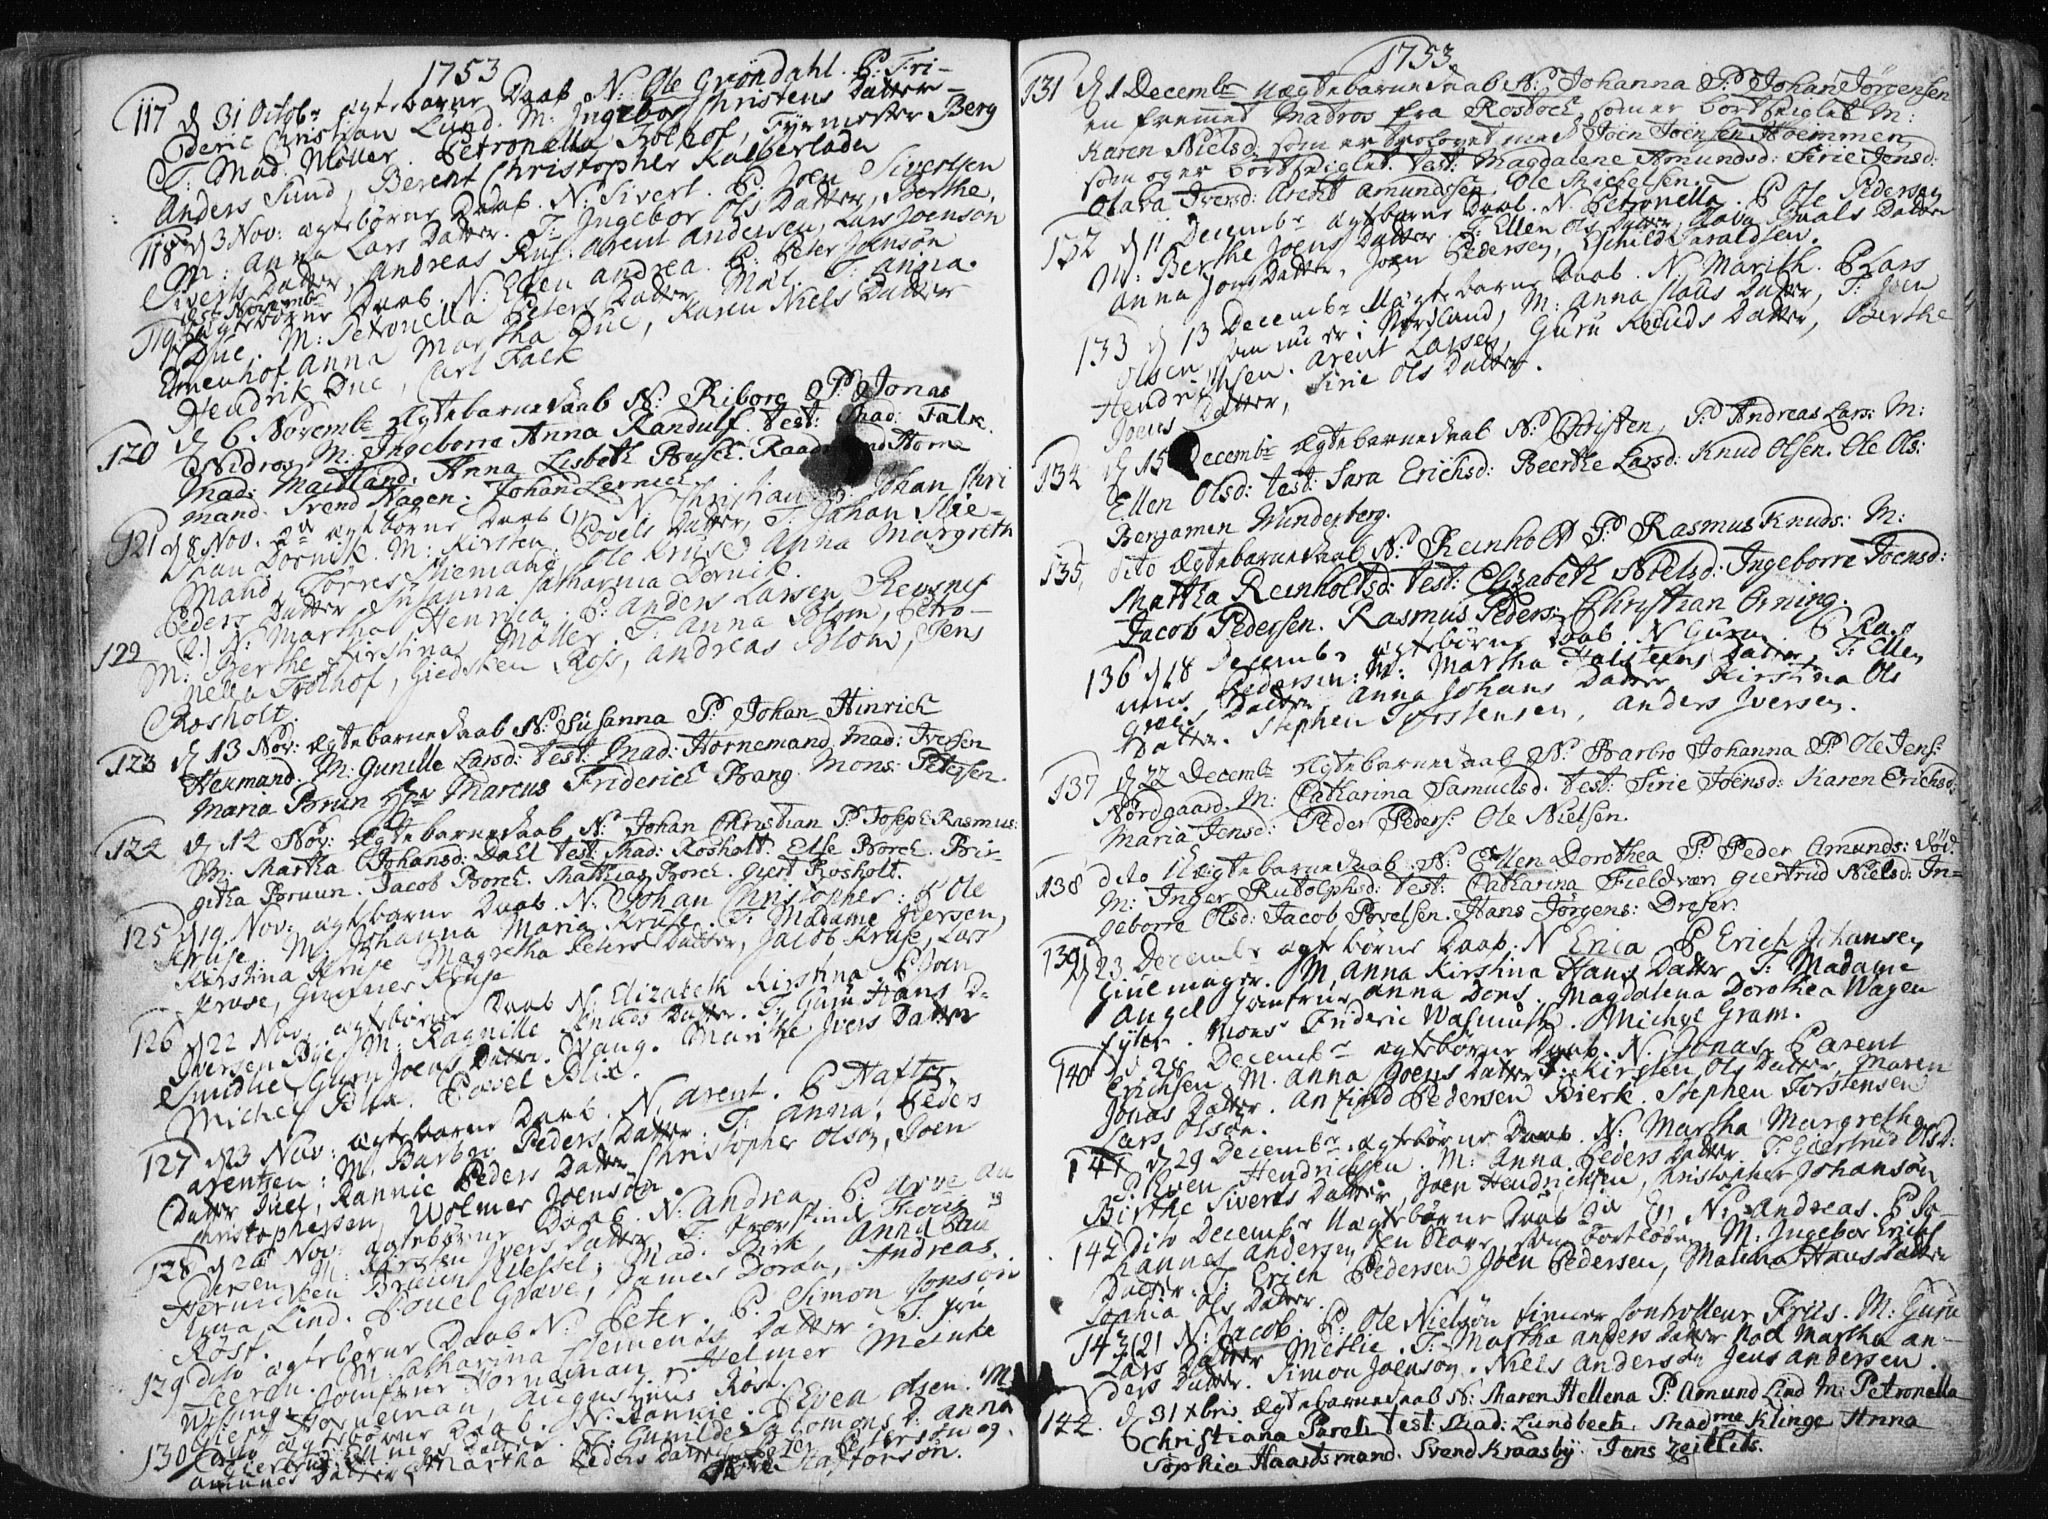 1753
117 d 31 Octobr ægtebarne Daab N: Ole Gröndahl. P: Fri-
deric Christian Lund. M: Ingebor Christens Datter
T: Mad. Möller. Petronella Tolhof, Fyrmester Berg
Anders Sund, Berent Christopher Kalberladn
118 d 3 Nov: ægtebørne Daab. N: Sivert. P: Joen Sivertsen
M: Anna Lars Datter. T: Ingebor Ols Datter, Berthe
Siverts Datter, Andreas Rus. Arent Andersen, Lars Joenson
119 ægtebørne Daab. N: Ellen Andrea. P: Peter Jonsön
Due. M: Petronella Peters Datter Möl. T: Anna
Emenhof Anna Martha Due, Karen Niels Datter
Hendrik Due, Carl Falk
120 d 6 Novembr Ægtebarnedaab N: Riborg P: Jonas
Nidros M: Ingeborre Anna Randulf. test: Mad: Falk.
Mad: Maitland: Anna Lisbeth Busch. Raad Horne
mand. Svend Hagen. Johan Lernich
121 d 8 Nov. ægtebørne Daab 1) N. Christian P: Johan Chri
stian Dornik. M: Kirsten Povels Datter, T: Johan Slie-
mand, Torres Sliemand. Ole Kruse Anna Margreth
Peders Datter Susanna Catharina Dornik.
122 2.) N: Martha Henrica. P: Anders Larsen Reusnes
M: Berthe Kirstina Möller. T: Anna Blom, Petro-
nella Tolhof, Giedsken Ross, Andreas Blom, Jens
Rosholt.
123 d 13 Nov: ægtebarnedaab N: Susanna P: Johan Hinrich
Hermand. M: Gunille Larsd: test: Mad: Hornemand Mad: Iversen
Maria Brun Hr Marcus Friderich Bang. Mons: Petersen.
124 d 14 Nov: Ægtebarnedaab N: Johan Christian P: Joseph Rasmus:
M: Martha Johansd: Dahl test: Mad: Rosholt Else Borch. Bir-
githa Bruun. Jacob Borch. Mathias Borch. Giert Rosholt.
125 d 19 Nov: ægtebarne Daab. N: Johan Christopher: P Ole
Kruse. M Johanna Maria Kruse. T: Madame Iversen,
Kirstina Kruse Magretha Peters Datter, Jacob Kruse, Lars
Kruse, Gunner Kruse
126 d 22 Nov: ægtebørne Daab N: Elizabeth Kirstina. P Joen
Iversen Bye, M: Ragnille Knuds Datter. T: Guru Hans D-
Smidhel Guru Joens Datter. Wang. Marithe Ivers Datter
Michel Blix. Povel Blix.
127 d 23 Nov: ægtebarne Daab. N. Arent. P Hafto
Arentsen: M. Barbro Peders Datter. T: Anna Peders
Datter Duel, Rannie Peders Datter Christopher Olson, Joen
Christophersen, Wolmer Joenson.
128 d 26 Nov: ægtebørne Daab. N. Andrea P: Arve An
dersen, M: Kirsten Ivers Datter. T:
Hermiksen Brun Wessel, Mad. Birk, Anna
Anna Lind. Povel Grave, James Doran, Andreas
Röst.
129 dito ægtebørne Daab N: Peter. P: Simon Jonson
Leeren. M: Catharina Clemends Datter T:
Wissing, Jomfrue Horneman. Helmer Meinke
Giert Horneman, Augustinus Röst.
130 Dito ægtebørne Daab. N. Rannie P Even Olsen. M
Giertrud Ellings Datter. T: Gunilde Salomons D: Anna
Amunds Datter, Martha Peders Datter Peter Peterson og
Haftorson.
1753
131 d 1 Decembr Uægtebarnedaab N: Johanna P: Johan Jörgensen
en fremmed Matros fra Rostoch, som er bortseiglet M:
Karen Nielsd: som er trolovet med Joen Joensen Hoemmen
som og er bortseiglet. test: Magdalene Amundsd: Sirie Jensd:
Olava Iversd: Arent Amundsen. Ole Michelsen.
132 d 11 Decembr ægtebarne Daab. N. Petronella. P Ole Pedersen
M: Berthe Joens Datter. T: Ellen Ols Datter, Haaels Datter
Anna Jons Datter, Joen Pedersen, Eschild Haraldsen.
133 d 13 Decembr Uægtebarne Daab. N. Marith. P Lars
Olsen som nu er i Nordland, M: Anna Claus Datter, T: Joen
Hendrichsen. Arent Larsen, Guru Knuds Datter, Berthe
Joens Datter, Sirie Ols Datter.
134 d 15 Decembr Ægtebarnedaab N: Christen, P: Andreas Lars: M:
Ellen Olsd: test: Sara Erichsd: Beerthe Larsd: Knud Olsen. Ole Ols:
Benjamen Wunderberg.
135, dito Ægtebarnedaab N: Reinholt P: Rasmus Knuds: M:
Martha Reinholtsd: test: Elizabeth Nielsd: Ingeborre Joensd:
Jacob Pedersen. Rasmus Peders: Christian Orning.
136 d 18 Decembr ægtebørne Daab. N Guru. P Ras
mus Pedersen: M: Martha Halsteens Datter, T: Ellen
Datter Anna Johans Datter Kirstina Ols
Datter. Stephen Torstensen, Anders Iversen.
137 d 22 Decembr Ægtebarnedaab N: Barbro Johanna P: Ole Jens:
Nordgaard. M: Catharina Samuelsd. test: Sirie Joensd: Karen Erichsd:
Maria Jensd: Peder Peders: Ole Nielsen.
138 dito Uægtebarnedaab N: Ellen Dorothea P: Peder Amunds: Sød.
M: Inger Rudolphsd: test: Catharina Fieldvær Giertrud Nielsd: In-
geborre Olsd: Jacob Povelsen. Hans Jörgens: Dreser.
139 d 23 Decembr ægtebørne Daab. N Erica P Erich Johansen
Giulmager. M. Anna Kirstina Hans Datter T: Madame
Angel Anna Dons. Magdalena Dorothea Wagen
Mons: Frideric Wasmuth. Michel Gram.
140 d 28 Decembr ægtebørne Daab. N. Jonas P Arent
Erichsen M. Anna Joens Datter T: Kirsten Ols Datter, Maren
Jonas Datter. Anfind Pedersen Bierk. Stephen Torstensen
Lars Olson.
141 d 29 Decembr ægtebørne Daab. N: Martha Margretha
P: Even Hendrichsen. M: Anna Peders Datter T. Giertrud Olsd:
Birthe Siverts Datter, Joen Hendrichsen, Christopher Johansön
142 Dito Decembr Uægtebørne Daab N: Andreas. P Jo-
hannes Andersen en Slave, som bortlöbt M: Ingebor Erichs
Datter. T: Erich Pedersen Joen Pedersen, Malena Hans Datter
Sophia Ols Datter.
143 (2) N: Jacob. P: Ole Nielsön tiener Controlleur Friis. M: Guru
Lars Datter Methe. T: Martha Anders Datter Martha An-
ders Datter. Simon Joenson. Niels Anderson Jens Andersen.
144. d 31 Xbris Ægtebarnedaab N: Maren Hellena P: Amund Lind M: Petronella
Christiana Parcli test: Mad: Lundbech. Madme Klinge Anna
Sophia Haardsmand. Svend Kraasby. Jens Zeitlits.